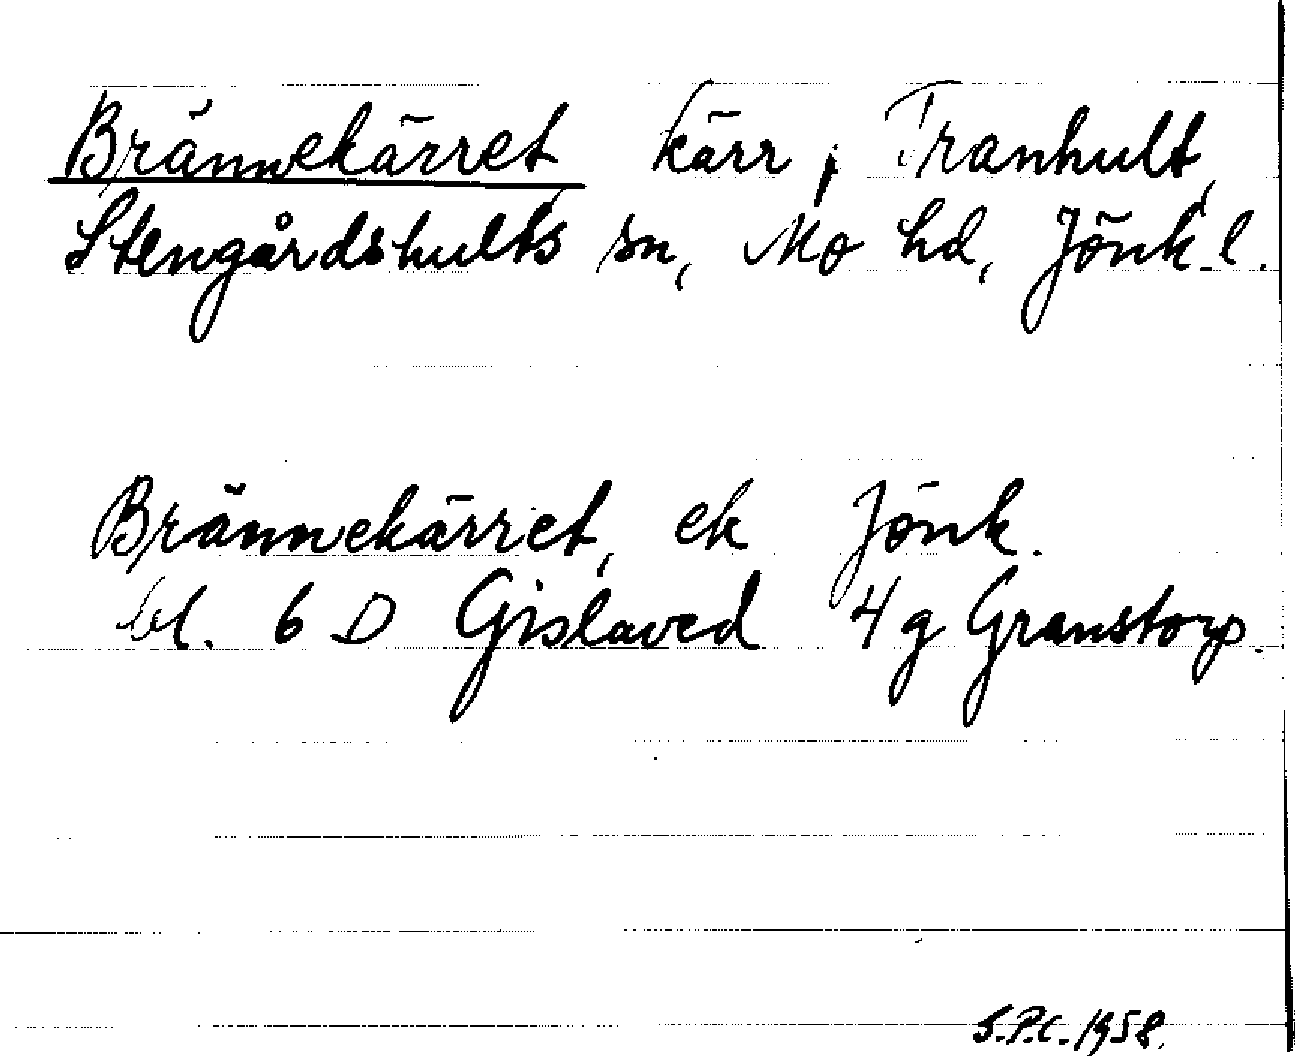 Brännekärret kärr, Tranhult,
Stengårdshults sn, Mo hd, Jönk. l.
Brännekärret, ek Jönk.
bl. 6 D Gislaved 4 g Granstorp.
S.P.C. 1958.